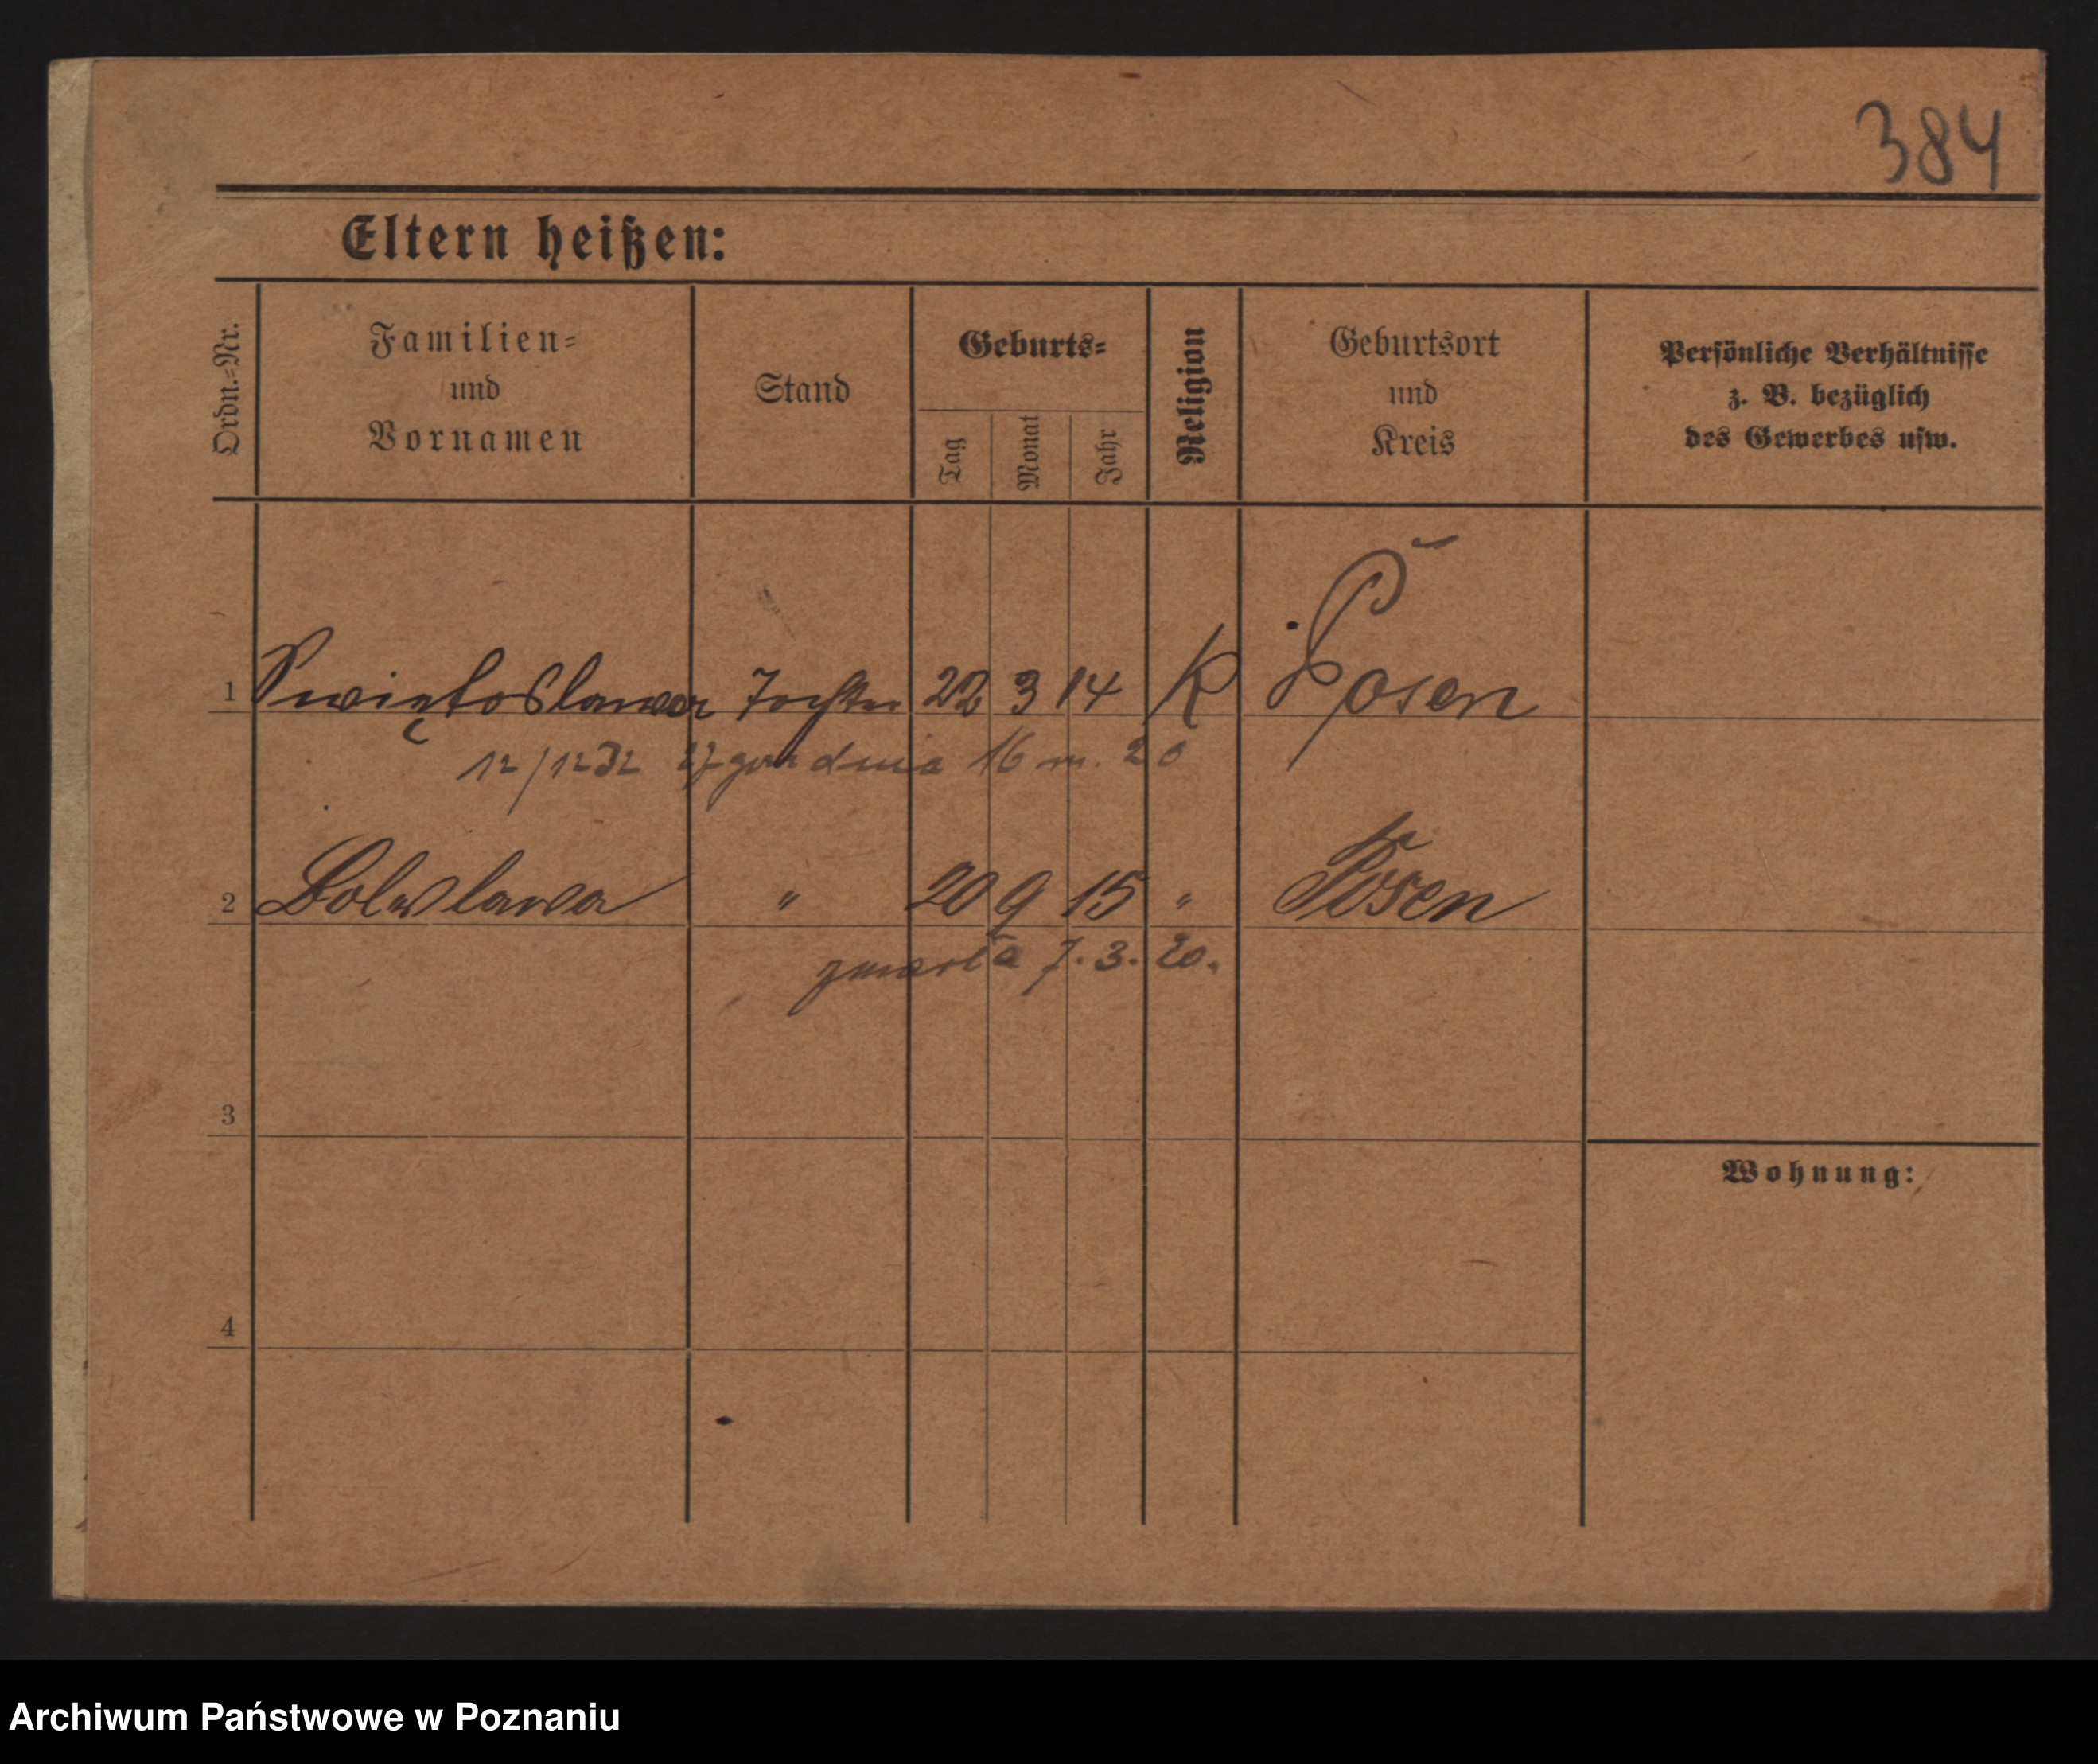 384
Eltern heißen:
Ordn.=Nr.
Familien= und Vornamen
Stand
Geburts=
Tag
Monat
Jahr
Religion
Geburtsort und Kreis
Persönliche Verhältnisse
z. B. bezüglich
des Gewerbes usw.
1 Swiętoslawa Tochter 22 3 14 K Posen
12/12 32 16 m. 20
2 Boleslawa " 20 9 15 " Posen
zmarła 7. 3. 20.
3
Wohnung:
4
Archiwum Państwowe w Poznaniu